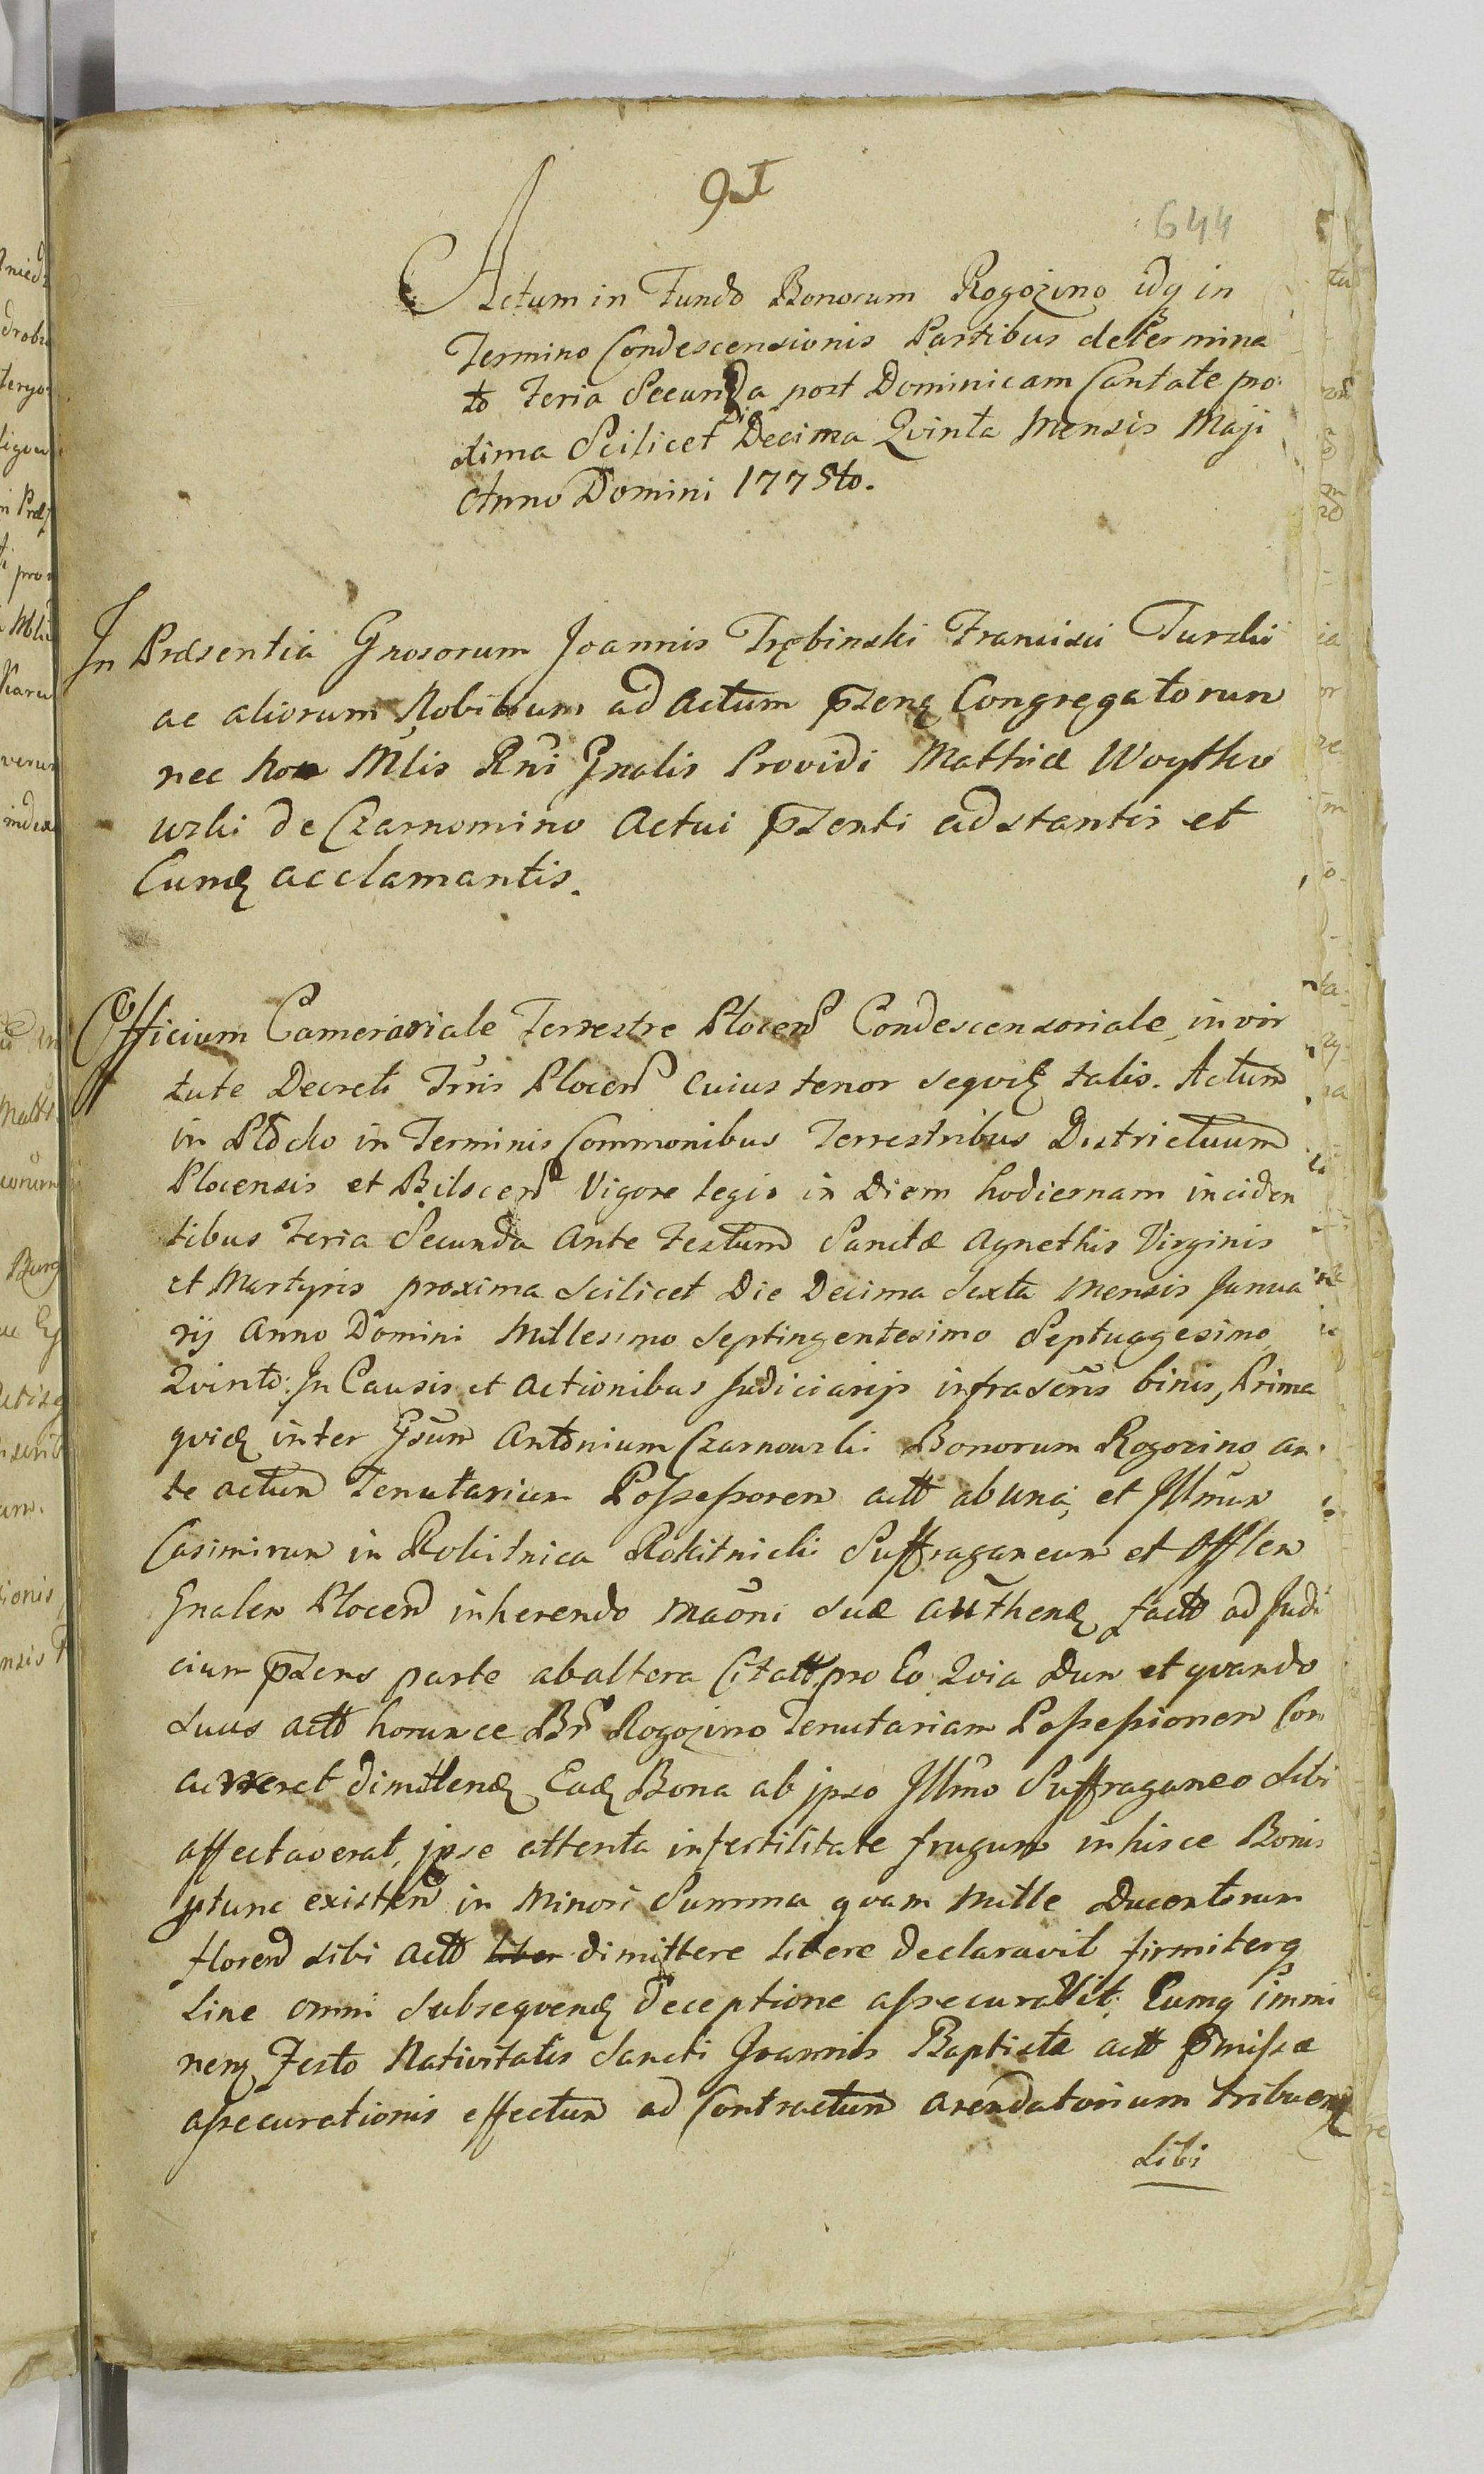 644
Actum in Fundo Bonorum Rogozino idq in
Termino Condescensionis Partibus determina
to Feria Secunda post Dominicam Cantate pro
xima Scilicet Die Decima Qvinta Mensis Maji
Anno Domini 1775to.
In Præsentia Gnosorum Joannis Trębinski Francisci Turski
ac aliorum Nobilium ad Actum pszenq Congregatorum
nec non Mlis Rni Gnalis Providi Matthiæ Woytko
wski de Czarnomino Actui pszenti adstantis et
Eumq acclamantis.
Officium Camerariale Terrestre Plocen Condescensoriale, in vir
tute Decreti Trnis Plocen cuius tenor seqvitq talis. Actum
in Płocko in Terminis Commonibus Terrestribus Districtuum
Plocensis et Bilscen Vigore legis in Diem hodiernam inciden
tibus Feria Secunda Ante Festum Sanctæ Agnethis Virginis
et Martyris proxima Scilicet Die Decima Sexta Mensis Janua
rij Anno Domini Millesimo Septingentesimo Septuagesimo
Qvinto: In Causis et Actionibus Judiciarijs infrascris binis, Prima
qvidq inter Gsum Antonium Czarnowski Bonorum Rogozino an
te actum Tenutarium Possessorem actt ab una; et Illmum
Casimirum in Rokitnica Rokitnicki Suffraganeum et Offlem
Gnalem Plocen inherendo maoni suæ authenq factt ad Judi
cium pszens parte ab altera Citatt, pro Eo Qvia Dum et qvando
Suus actt horunce Brum Rogozino Tenutariam Possessionem Con
dimittendq Eadq Bona ab ipso Illmo Suffraganeo Sibi
affectaverat, ipse attenta infertilitate frugum in hisce Bonis
ptunc existen in Minori Summa qvam Mille Ducentorum
floren sibi actt liber dimittere libere declaravit firmiterq
Sine omni Subseqvenq deceptione assecuravit: Cumq immi
nenq Festo Nativitatis Sancti Joannis Baptistæ actt pmissæ
assecurationis effectum ad Contractum arendatorium tribuenq
Sibi